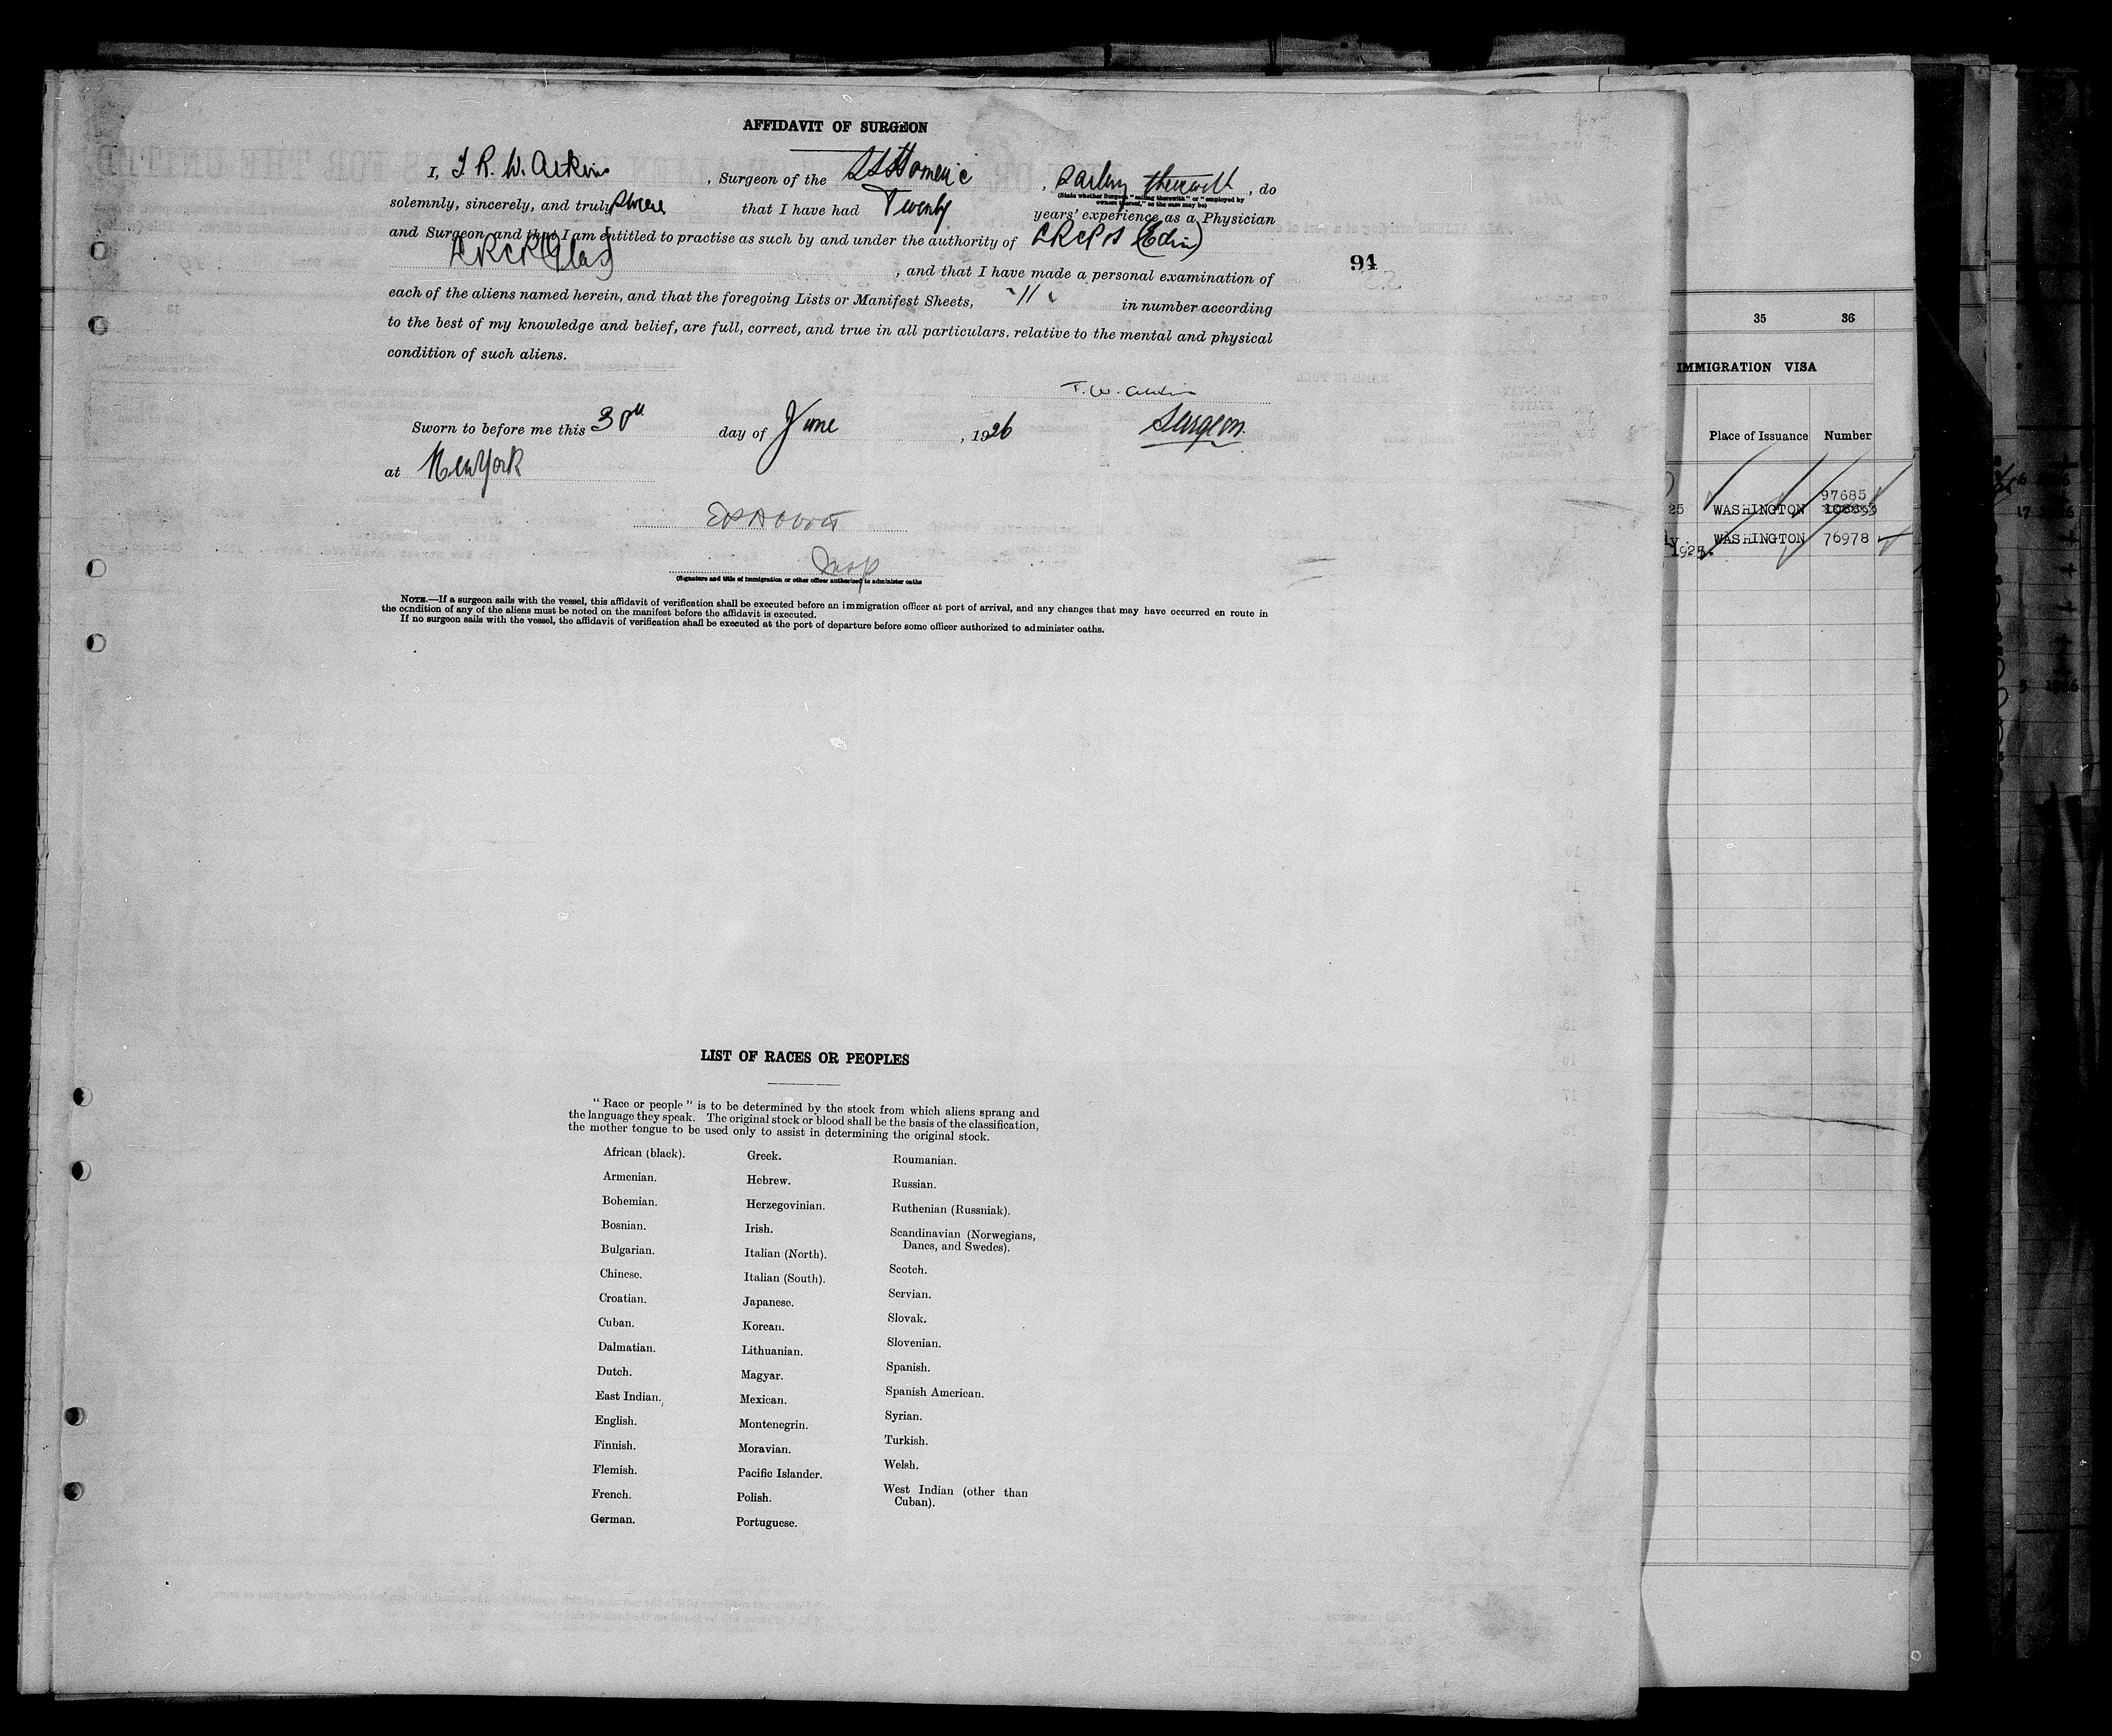 AFFIDAVIT OF SURGEON
I, T R. W. Atkins, Surgeon of the SS Homeric, sailing therewith, do
(State whether Surgeon "sailing therewith" or "employed by
owners thereof," as the case may be)
solemnly, sincerely, and truly swear that I have had Twenty years' experience as a Physician
and Surgeon, and that I am entitled to practise as such by and under the authority of LRCPS (Edin)
(Glas), and that I have made a personal examination of
94
each of the aliens named herein, and that the foregoing Lists or Manifest Sheets, 11 in number according
to the best of my knowledge and belief, are full, correct, and true in all particulars, relative to the mental and physical
condition of such aliens.
Surgeon.
Sworn to before me this 30th day of June, 1926
at New York
Insp
(Signature and title of immigration or other officer authorized to administer oaths
NOTE.—If a surgeon sails with the vessel, this affidavit of verification shall be executed before an immigration officer at port of arrival, and any changes that may have occurred en route in
the condition of any of the aliens must be noted on the manifest before the affidavit is executed.
If no surgeon sails with the vessel, the affidavit of verification shall be executed at the port of departure before some officer authorized to administer oaths.
LIST OF RACES OR PEOPLES
"Race or people" is to be determined by the stock from which aliens sprang and
the language they speak. The original stock or blood shall be the basis of the classification,
the mother tongue to be used only to assist in determining the original stock.
African (black).
Armenian.
Bohemian.
Bosnian.
Bulgarian.
Chinese.
Croatian.
Cuban.
Dalmatian.
Dutch.
East Indian.
English.
Finnish.
Flemish.
French.
German.
Greek.
Hebrew.
Herzegovinian.
Irish.
Italian (North).
Italian (South).
Japanese.
Korean.
Lithuanian.
Magyar.
Mexican.
Montenegrin.
Moravian.
Pacific Islander.
Polish.
Portuguese.
Roumanian.
Russian.
Ruthenian (Russniak).
Scandinavian (Norwegians,
Danes, and Swedes).
Scotch.
Servian.
Slovak.
Slovenian.
Spanish.
Spanish American.
Syrian.
Turkish.
Welsh.
West Indian (other than
Cuban).
35 36
IMMIGRATION VISA
Place of Issuance Number
97685
25 WASHINGTON
WASHINGTON 76978
1925.